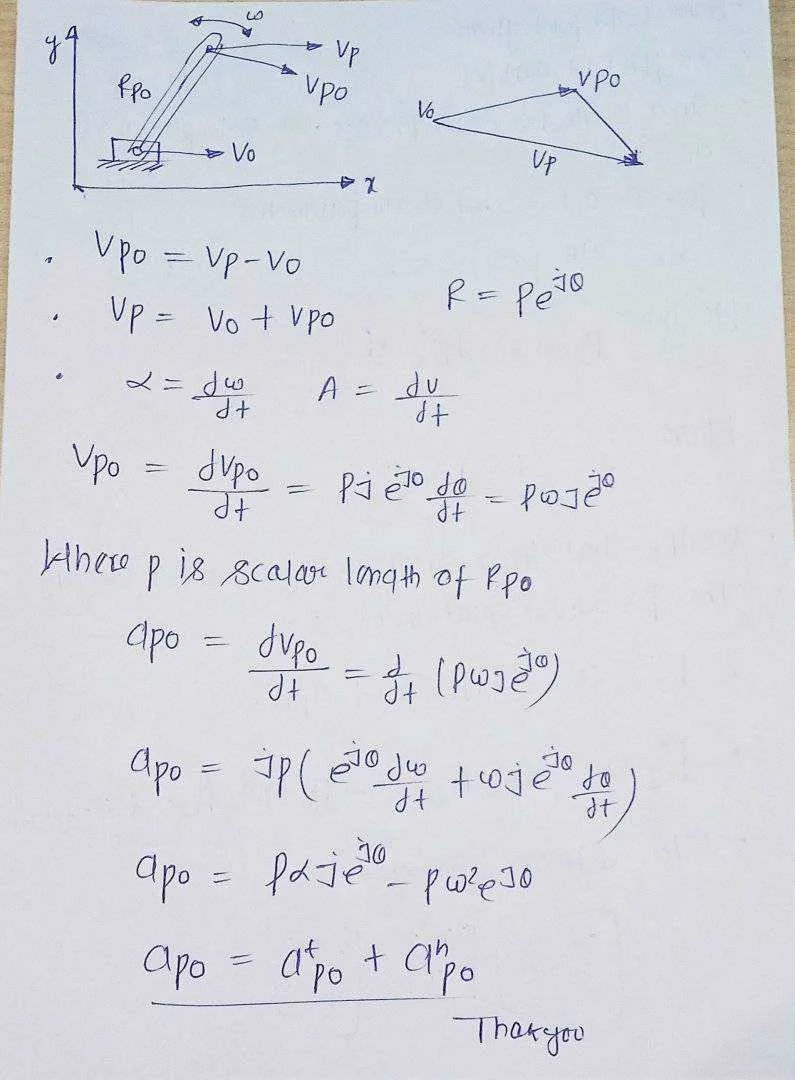 y
ω
VP
RPO
VPO
VO
x
VO
VPO
VP
. VPO = VP - VO
R = Pe^jθ
. VP = VO + VPO
. α = dω/dt A = dv/dt
VPO = dVPO/dt = Pj e^jθ dθ/dt = Pωje^jθ
Where P is scalar length of RPO
aPO = dVPO/dt = d/dt (Pωje^jθ)
aPO = jP( e^jθ dω/dt + ωje^jθ dθ/dt)
aPO = Pαje^jθ - Pω²ejθ
aPO = a^t PO + a^n PO
Thakyou